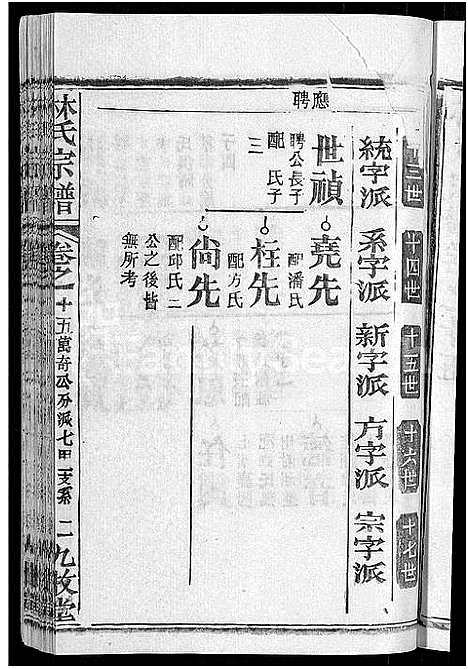 十三世
十四世
十五世
十六世
十七世
統字派
系字派
新字派
方字派
宗字派
應聘
世禎
聘公長子
配 氏子
三
堯先
配潘氏
柱先
配方氏
尙先
配邱氏二
公之後皆
無所考
林氏宗譜
卷之
十五萬奇公分派七甲一支系
二
九牧堂